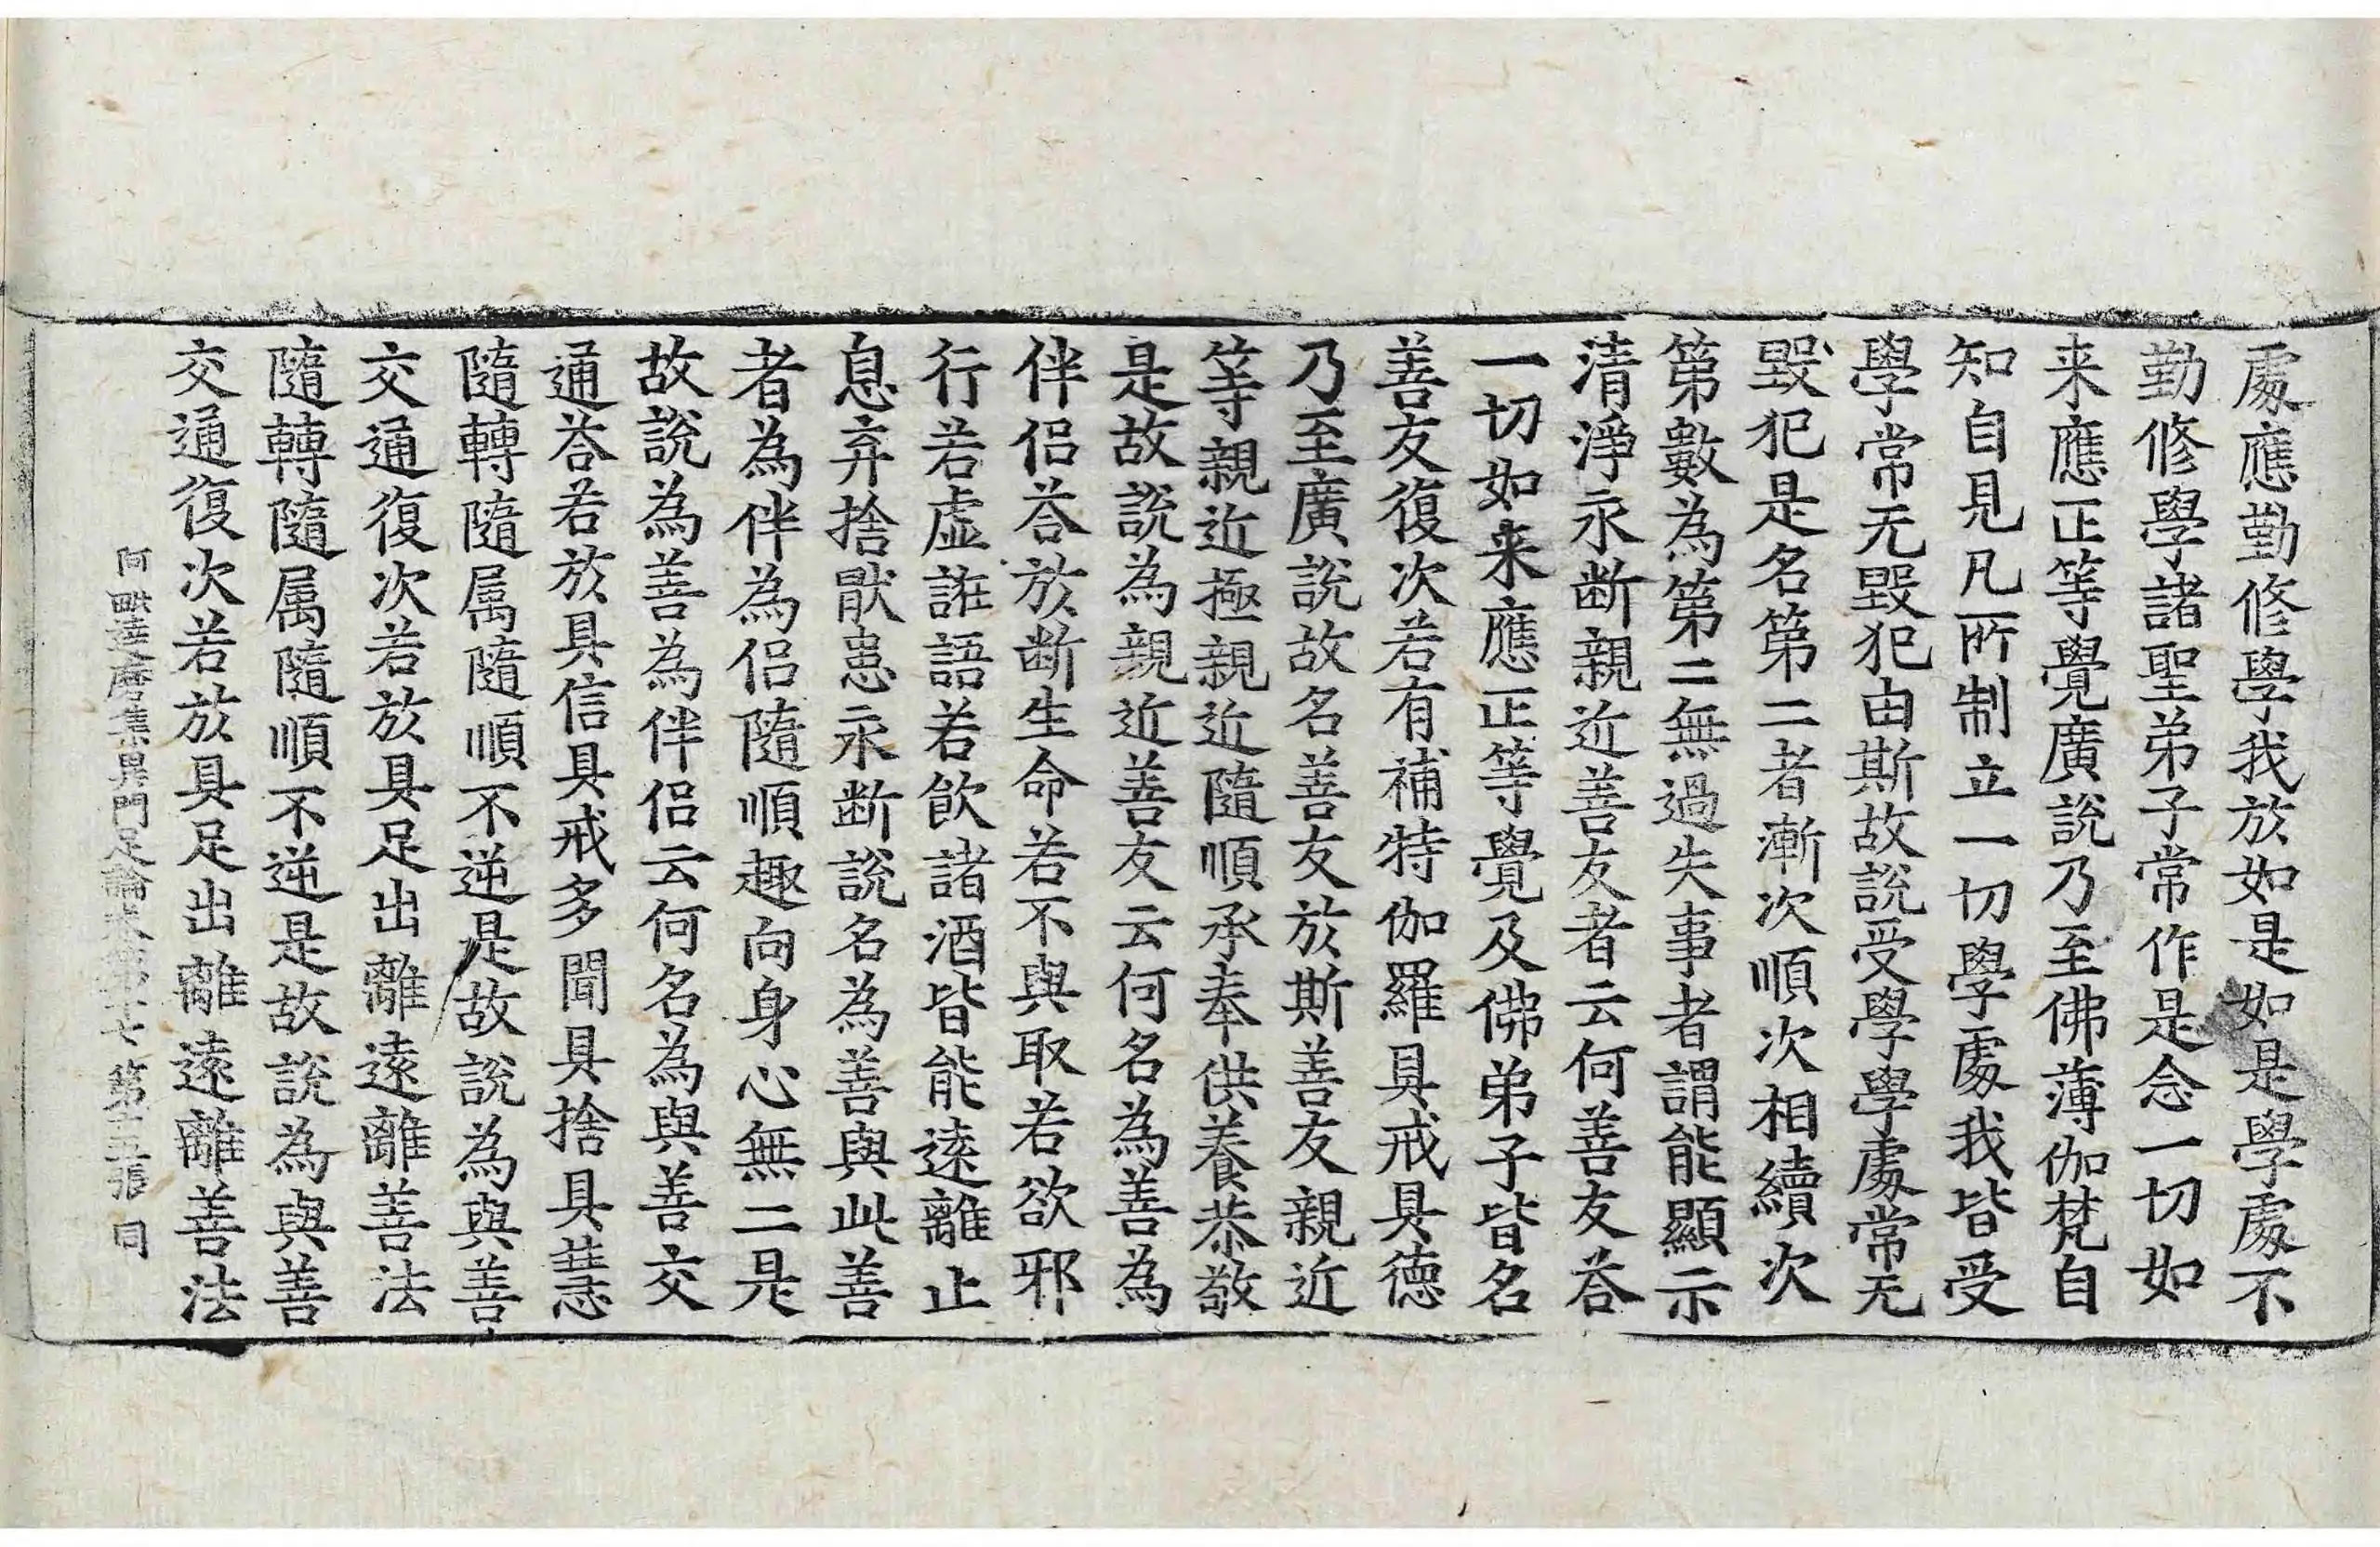 處應勤修學我於如是如是學處不
勤修學諸聖弟子常作是念一切如
来應正等覺廣說乃至佛薄伽梵自
知自見凡所制立一切學處我皆受
學常无毀犯由斯故說受學學處常无
毀犯是名第二者漸次順次相續次
第數為第二無過失事者謂能顯示
清淨永断親近善友者云何善友荅
一切如来應正等覺及佛弟子皆名
善友復次若有補特伽羅具戒具德
乃至廣說故名善友於斯善友親近
等親近極親近隨順承奉供養恭敬
是故說為親近善友云何名為善為
伴侣荅於断生命若不與取若欲邪
行若虚誑語若飲諸酒皆能遠離止
息弃捨猒患永断說名為善與此善
者為伴為侣隨順趣向身心無二是
故說為善為伴侣云何名為與善交
通荅若於具信具戒多聞具捨具慧
隨轉隨属隨順不逆是故說為與善
交通復次若於具足出離遠離善法
隨轉隨属隨順不逆是故說為與善
交通復次若於具足出離遠離善法
阿毗達磨集異門足論 第十五張 同